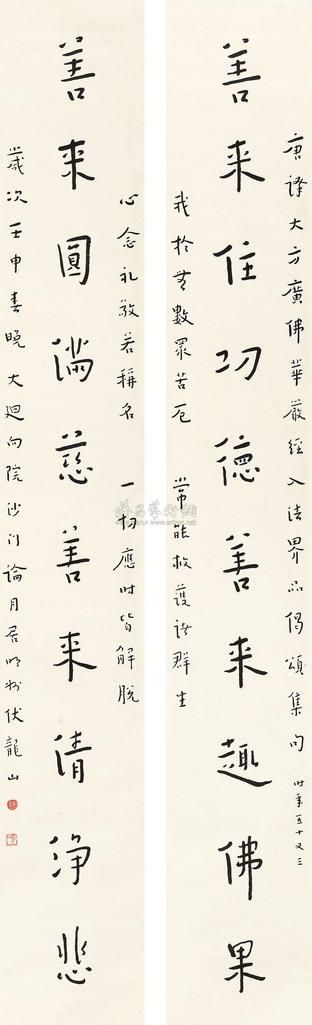 唐譯大方廣佛華嚴經入法界品偈頌集句 時年五十又三
善来住功德善来趣佛果
我於無數眾苦厄 常能救護諸群生
心念礼敬若稱名 一切應時皆解脫
善来圓滿慈善来清淨悲
歲次壬申春晚大迴向院沙門論月居明州伏龍山